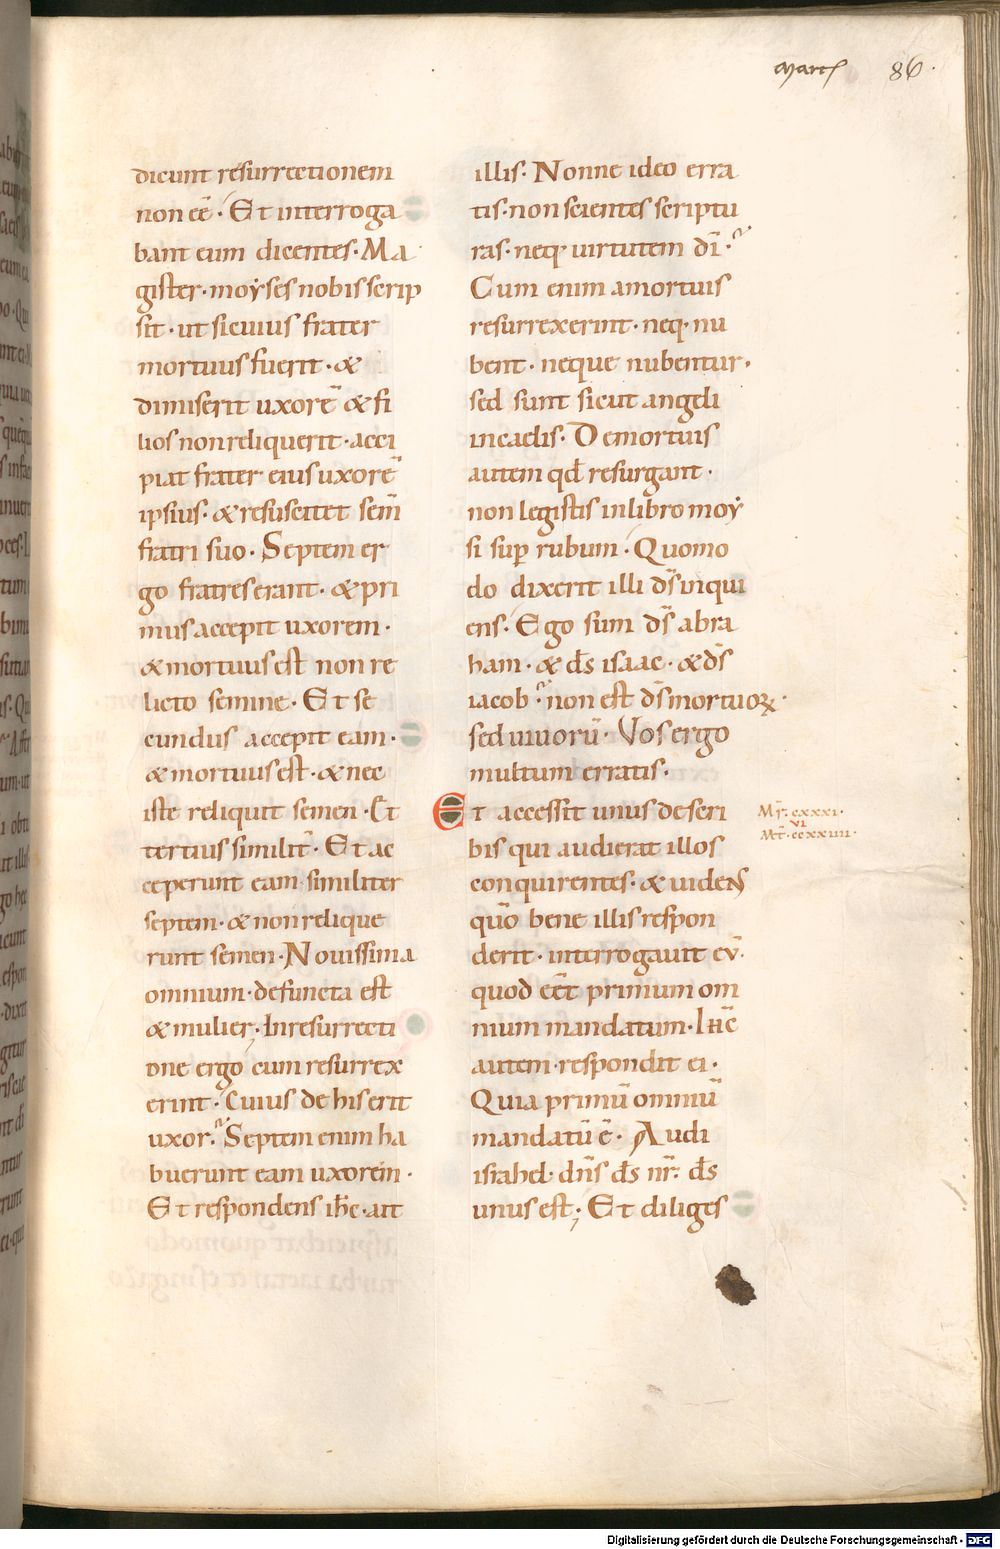 marcs 86.
dicunt resurrectionem
non eē· Et interroga
bant eum dicentes· Ma
gister· moẏses nobis scrip
sit· ut si cuius frater
mortuus fuerit· &
dimiserit uxorē & fi
lios non reliquerit· acci
piat frater eius uxorē
ipsius· & resuscitet sem̄
fratri suo· Septem er
go fratres erant· & pri
mus accepit uxorem·
& mortuus est non re
licto semine· Et se
cundus accepit eam·
& mortuus est· & nec
iste reliquit semen· Et
tertius similit̄· Et ac
ceperunt eam similiter
septem· & non relique
runt semen· Nouissima
omnium· defuncta est
& mulier; In resurrecti
one ergo cum resurrex
erint· Cuius de his erit
uxor· Septem enim ha
buerunt eam uxorem·
Et respondens ih̄c· ait
illis· Nonne ideo erra
tis· non scientes scriptu
ras· neq· uirtutem dī·
Cum enim a mortuis
resurrexerint· neq· nu
bent· neque nubentur·
sed sunt sicut angeli
in caelis· De mortuis
autem qđ resurgant·
non legistis in libro moẏ
si suꝑ rubum· Quomo
do dixerit illi ds̄ inqui
ens· Ego sum ds̄ abra
ham· & ds̄ isaac· & ds̄
iacob· non est ds̄ mortuoꝝ·
sed uiuorū· Vos ergo
multum erratis·
Et accessit unus de scri
bis qui audierat illos
conquirentes· & uidens
quō bene illis respon
derit· interrogauit eū·
quod eēt primum om
nium mandatum· Ihc̄
autem· respondit ei·
Quia primū omniū
mandatū ē· Audi
israhel· dn̄s ds̄ nr̄· ds̄
unus est; Et diliges
Mr̄· cxxxi·
vi
Mt̄· ccxxiiii·
Digitalisierung gefördert durch die Deutsche Forschungsgemeinschaft - DFG